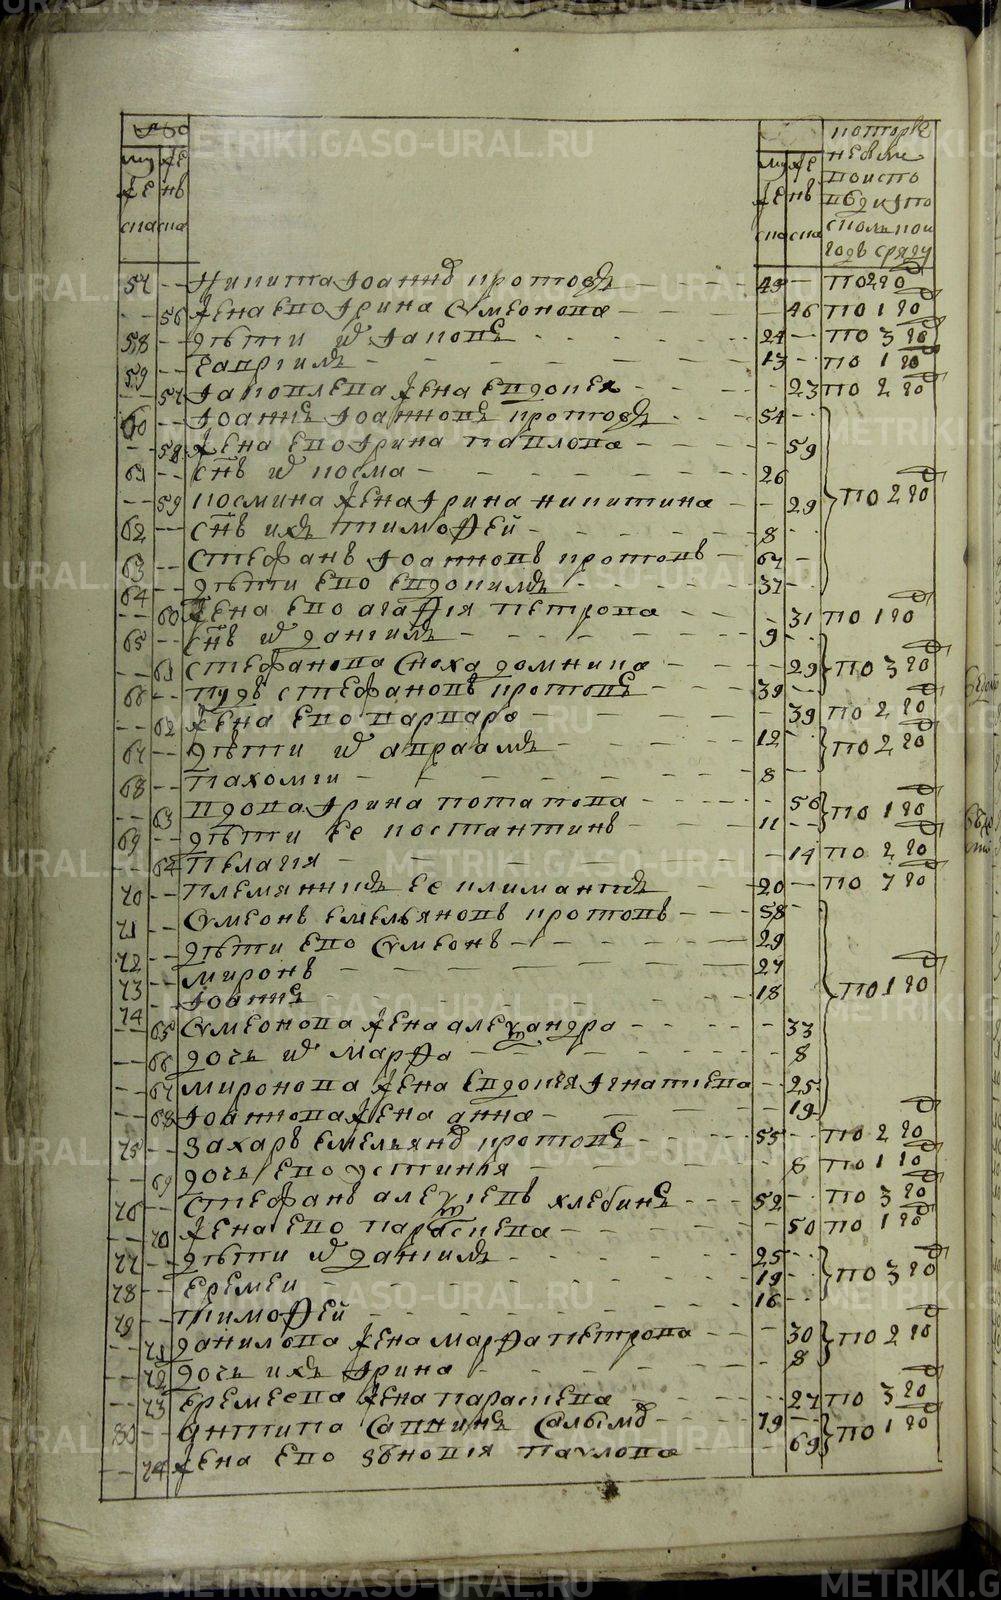 METRIKI.GASO-URAL.RU
муже женъ
ска ска
муже женъ
ска ска
которые
не были
поисто
исполнои
годъ сряду
57 Никита Іоаннов Кротовъ 49 по 2 го
56 Жена его Ирина Симеонова 46 по 1 го
58 дѣти их Іаковъ 24 по 3 го
59 Гавриилъ 13 по 1 го
57 Іаковлева жена Евдокея 23 по 2 го
60 Іоаннъ Іоанновъ Кротовъ 54
58 Жена его Ирина Павлова 59
61 сн҃ъ их Косма 26
59 Космина жена Ирина Никитина 29 по 2 го
62 сн҃ъ ихъ Тимофей 8
63 Стефанъ Іоанновъ Кротовъ 67
64 дѣти его Евдокимъ 31
60 Жена его Агафія Петрова 31 по 1 го
65 сн҃ъ их Даніилъ 9
61 Стефанова сноха Домника 29 по 3 го
66 Іудъ Стефановъ Кротовъ 39
62 Жена его Варвара 39 по 2 го
67 дѣти их Авраамъ 12 по 2 го
68 Пахоміи 8
63 Вдова Ирина Потапова 56 по 1 го
69 дѣти ее Костантинъ 11
64 Пелагія 14 по 2 го
70 Племянникъ ее Климантъ 20 по 7 го
71 Симеонъ Емельяновъ Кротовъ 58
72 дѣти его Симеонъ 29
73 Миронъ 27
74 Іоаннъ 18 по 1 го
65 Симеонова жена Александра 33
66 дочь их Марфа 8
67 Миронова жена Евдокея Игнатиева 25
68 Іоаннова жена Анна 19
75 Захаръ Емельянов Кротовъ 55 по 2 го
69 дочь его Устинья 8 по 1 го
76 Стефанъ Алексіевъ Хлебинъ 52 по 3 го
70 Жена его Параскева 50 по 1 го
77 дѣти их Даніилъ 25
78 Еремеи 19 по 3 го
79 Тимофей 16
71 Данилова жена Марфа Петрова 30 по 2 го
72 дочь ихъ Ирина 8
73 Еремеева жена Параскева 27 по 3 го
80 Антипа Саввинъ 79 по 1 го
74 Жена его Павлова 69